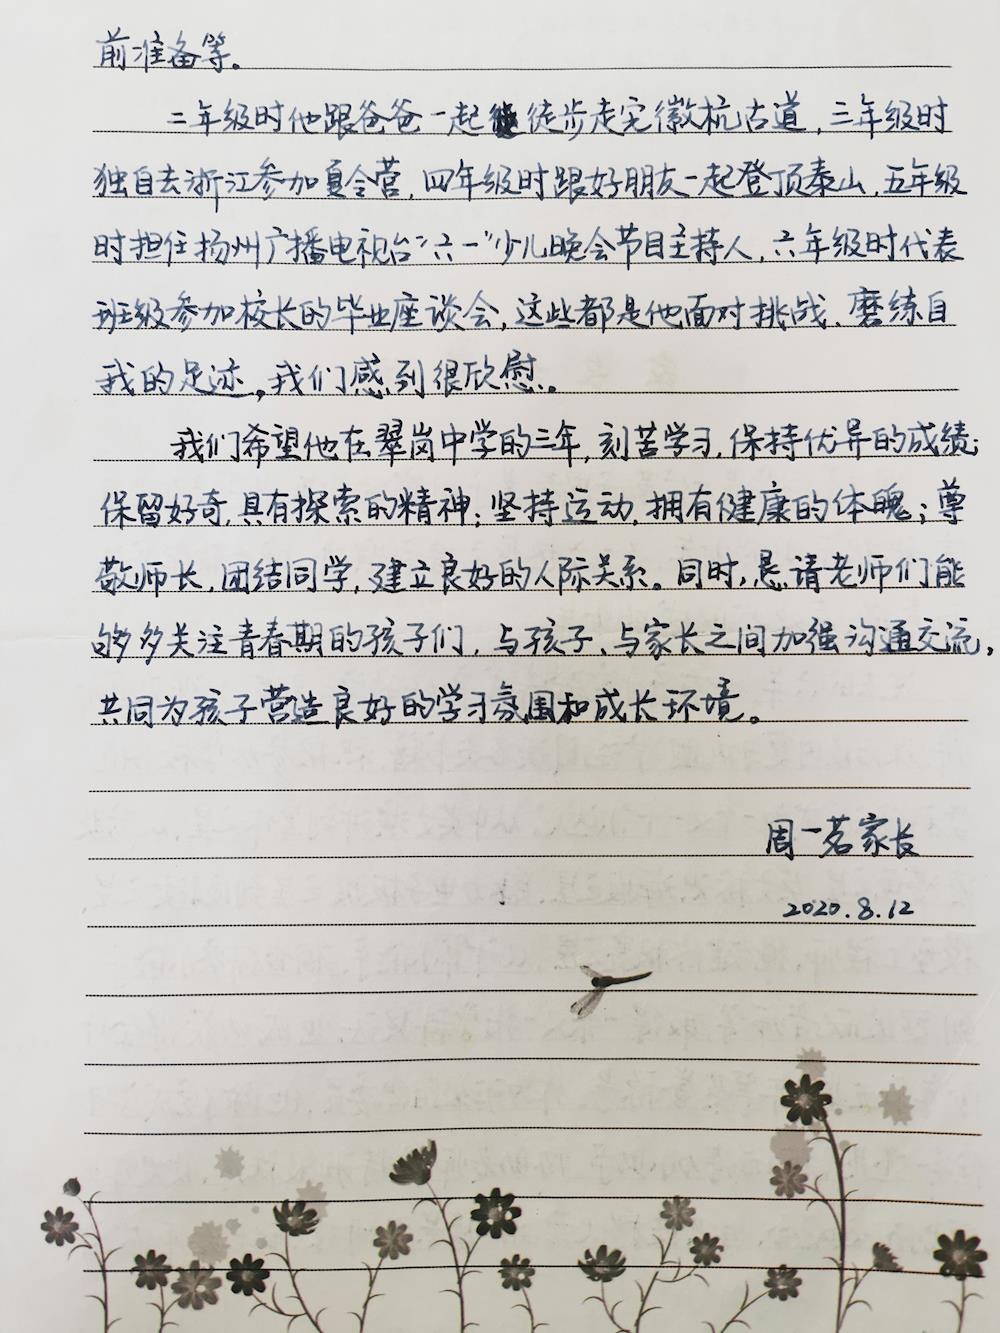 前准备等。
二年级时他跟爸爸一起徒步走完徽杭古道，三年级时
独自去浙江参加夏令营，四年级时跟好朋友一起登顶泰山，五年级
时担任扬州广播电视台“六一”少儿晚会节目主持人，六年级时代表
班级参加校长的毕业座谈会，这些都是他面对挑战、磨练自
我的足迹。我们感到很欣慰。
我们希望他在翠岗中学的三年，刻苦学习，保持优异的成绩；
保留好奇，具有探索的精神；坚持运动，拥有健康的体魄；尊
敬师长，团结同学，建立良好的人际关系。同时，恳请老师们能
够多多关注青春期的孩子们，与孩子、与家长之间加强沟通交流，
共同为孩子营造良好的学习氛围和成长环境。
周一茗家长
2020.8.12